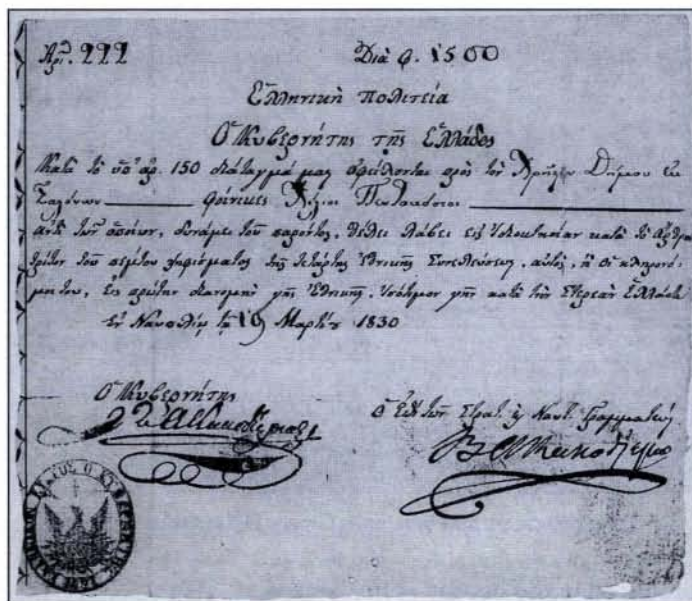 Ἀρι. 222
Διὰ φ. 1500
Ἑλληνικὴ πολιτεία
Ὁ Κυβερνήτης τῆς Ἑλλάδος
Κατὰ τὸ ὑπ' ἀρ. 150 διάταγμά μας ὀφείλονται πρὸς τὸν Δήμου ἐκ
Σαλώνων φοίνικες Χίλιοι Πεντακόσιοι
ἀντὶ τῶν ὁποίων, δυνάμει τοῦ παρόντος, θέλει λάβει εἰς ἰδιοκτησίαν κατὰ τὸ ἄρθρον
τρίτον τοῦ πέμπτου ψηφίσματος τῆς τετάρτης Ἐθνικῆς Συνελεύσεως, αὐτός, ἢ οἱ κληρονό-
μοι του, εἰς πρώτην διανομὴν γῆς Ἐθνικῆς, γῆς κατὰ τὴν Στερεὰν Ἑλλάδα
ἐν Ναυπλίῳ τῇ 19 Μαρτίου 1830
Ὁ Κυβερνήτης
ὁ ἐπὶ τῶν Στρατ. Ναυτ. Γραμματεὺς
Ι. Α. Καποδίστριας
Ο ΚΥΒΕΡΝΗΤΗΣ